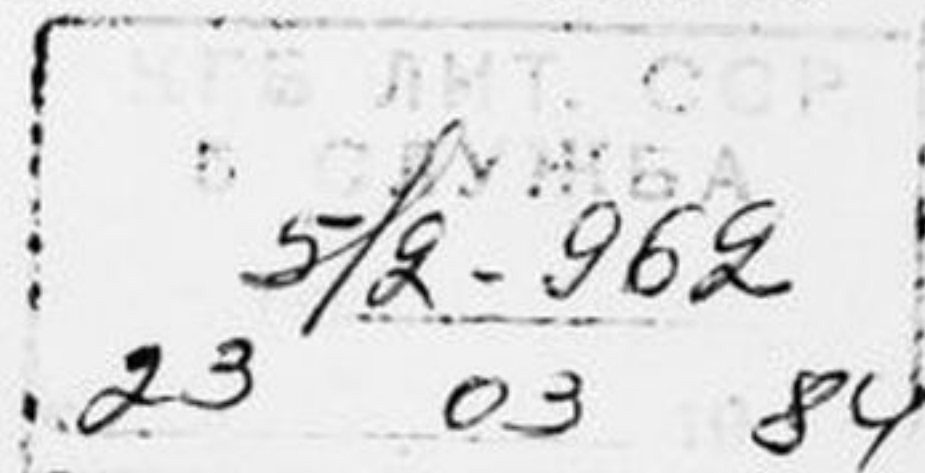 КГБ ЛИТ. ССР
5 СЛУЖБА
5/2-962
23 03 84